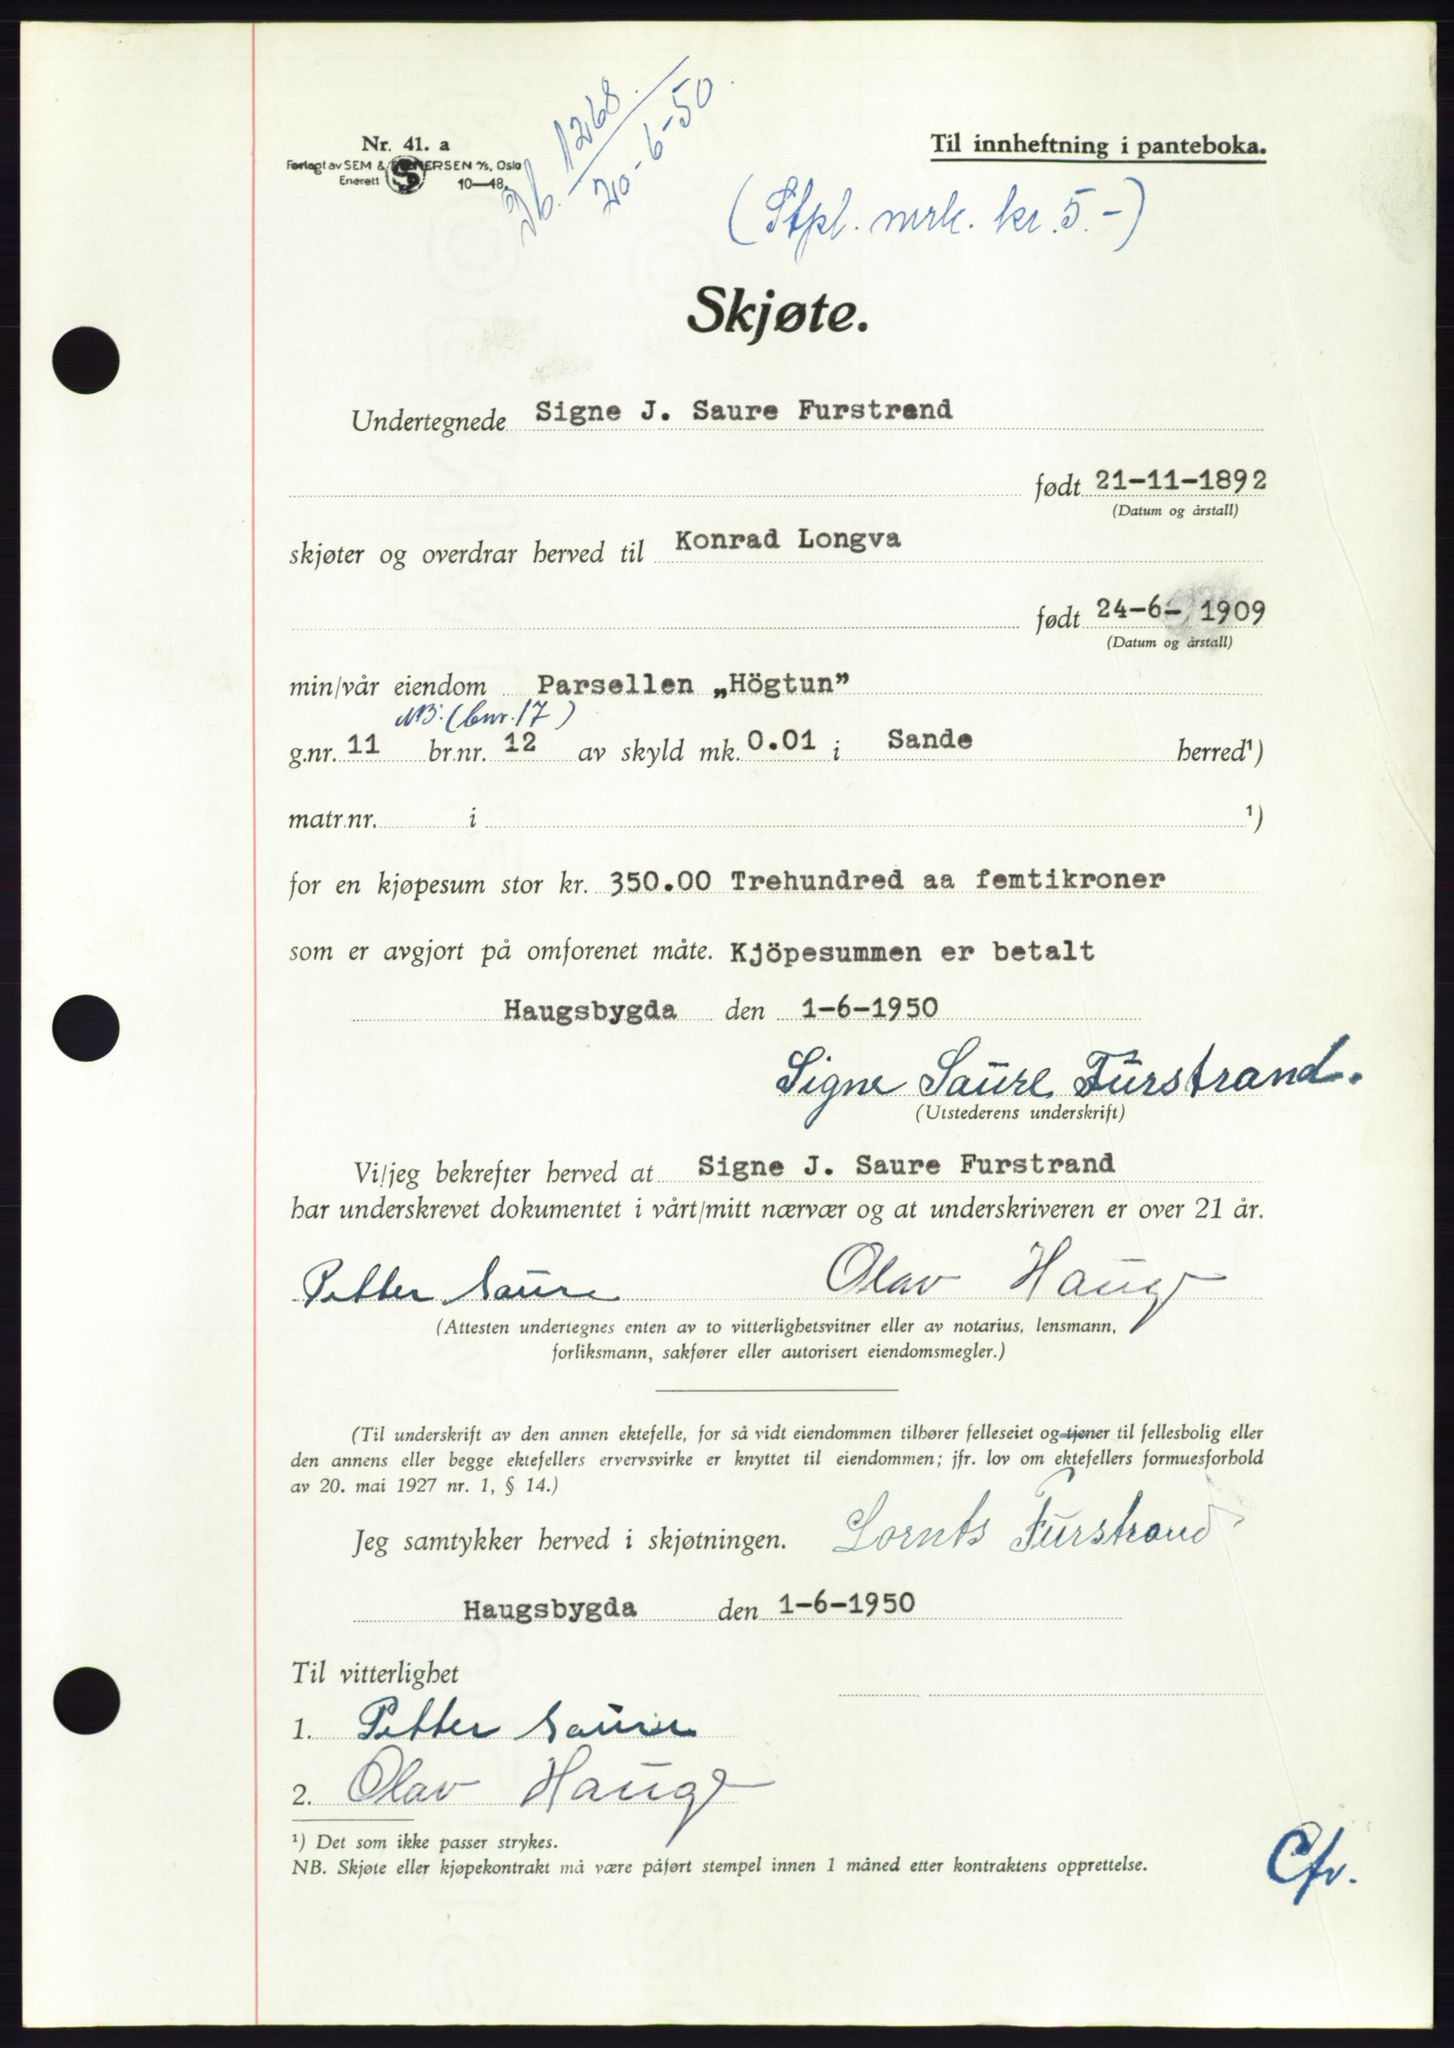 Nr. 41. a
Forlagt av SEM & STENERSEN A/S, Oslo
Enerett 10—48.
Db. 1268
20-6-50
Til innheftning i panteboka.
(Stpl. mrk. kr. 5.-)
Skjøte.
Undertegnede Signe J. Saure Furstrand
født 21-11-1892
(Datum og årstall)
skjøter og overdrar herved til Konrad Longva
født 24-6- 1909
(Datum og årstall)
min/vår eiendom Parsellen „Högtun”
NB: (bnr. 17)
g.nr. 11 br.nr. 12 av skyld mk. 0.01 i Sande herred¹)
matr.nr. i ¹)
for en kjøpesum stor kr. 350.00 Trehundred aa femtikroner
som er avgjort på omforenet måte. Kjöpesummen er betalt
Haugsbygda den 1-6-1950
Signe Saure Furstrand.
(Utstederens underskrift)
Vi/jeg bekrefter herved at Signe J. Saure Furstrand
har underskrevet dokumentet i vårt/mitt nærvær og at underskriveren er over 21 år.
Petter Saure Olav Haug
(Attesten undertegnes enten av to vitterlighetsvitner eller av notarius, lensmann,
forliksmann, sakfører eller autorisert eiendomsmegler.)
(Til underskrift av den annen ektefelle, for så vidt eiendommen tilhører felleseiet og tjener til fellesbolig eller
den annens eller begge ektefellers ervervsvirke er knyttet til eiendommen; jfr. lov om ektefellers formuesforhold
av 20. mai 1927 nr. 1, § 14.)
Jeg samtykker herved i skjøtningen. Lornts Furstrand
Haugsbygda den 1-6-1950
Til vitterlighet
1. Petter Saure
2. Olav Haug
¹) Det som ikke passer strykes.
NB. Skjøte eller kjøpekontrakt må være påført stempel innen 1 måned etter kontraktens opprettelse.
Cfr.